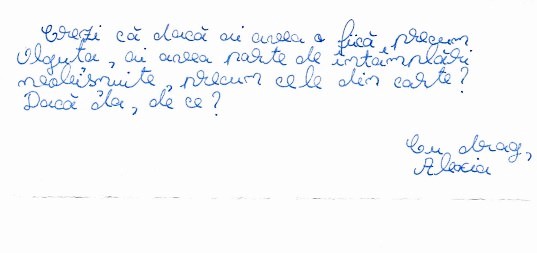 Crezi că dacă ai avea o fică, precum
Olguța, ai avea parte de întâmplări
neobișnuite, precum cele din carte?
Dacă da, de ce?
Cu drag,
Alexia